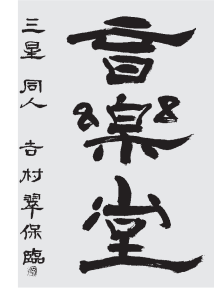 音樂堂
三星 同人 吉村翠保臨